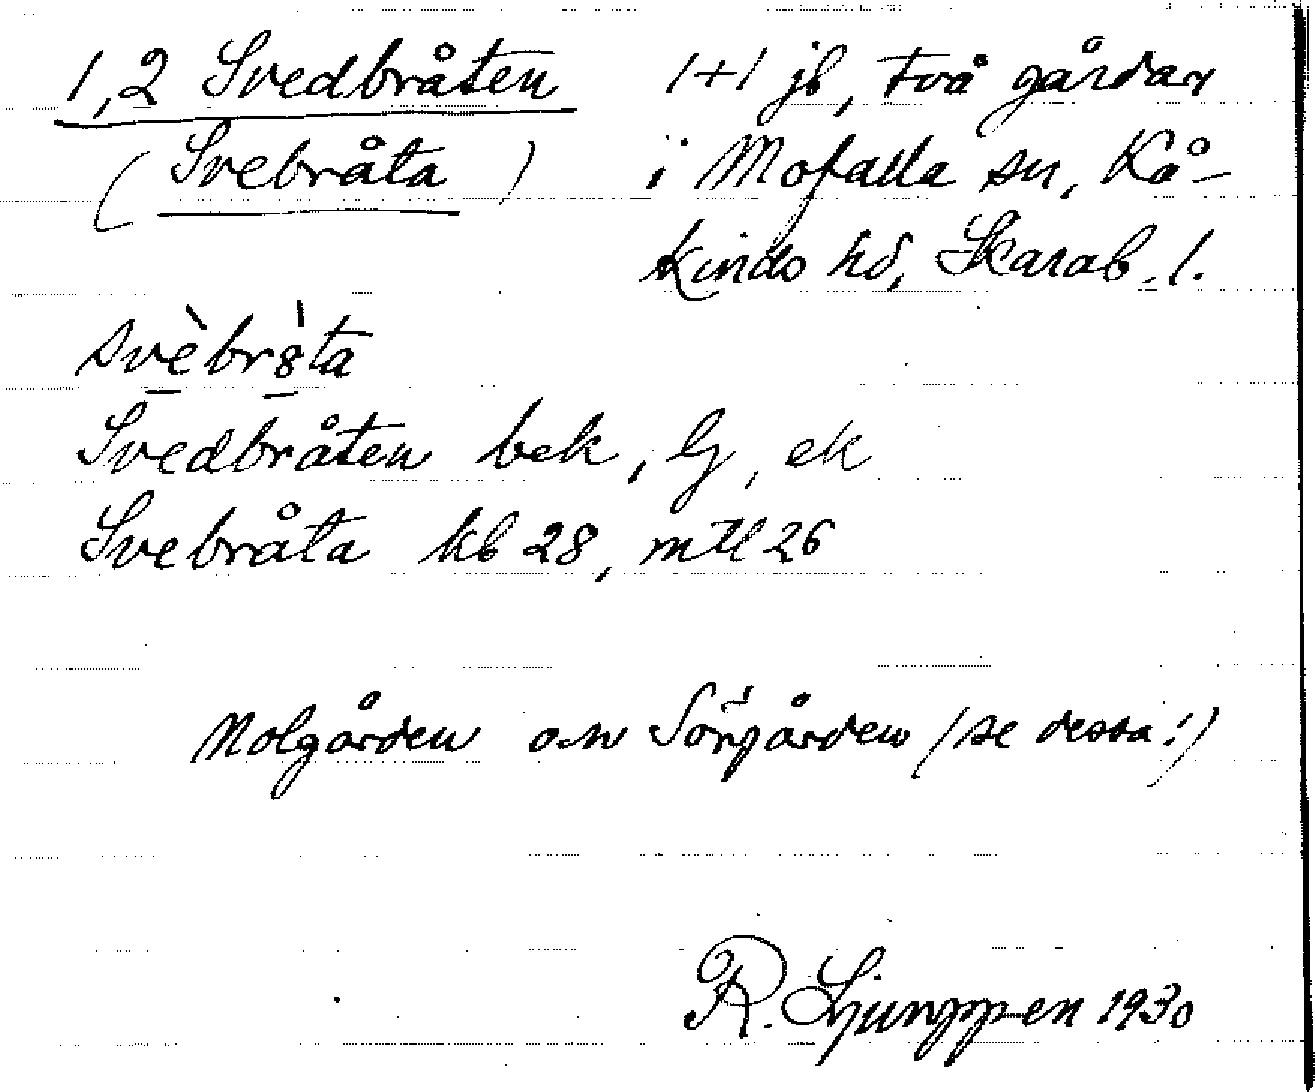 1,2 Svedbråten 1+1 jb, två gårdar
(Svebråta) i Mofalla sn, Kå-
kinds hd, Skarab. l.
svèbr8̀ta
Svedbråten bek, G, ek
Svebråta kb 28, mtl 26
Nolgården och Sörgården (se dessa!)
R. Ljunggren 1930